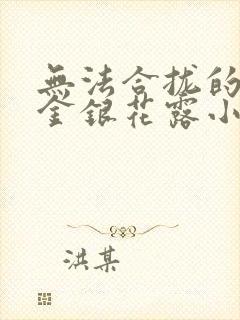 無法合拢的
金銀花露小
洪某